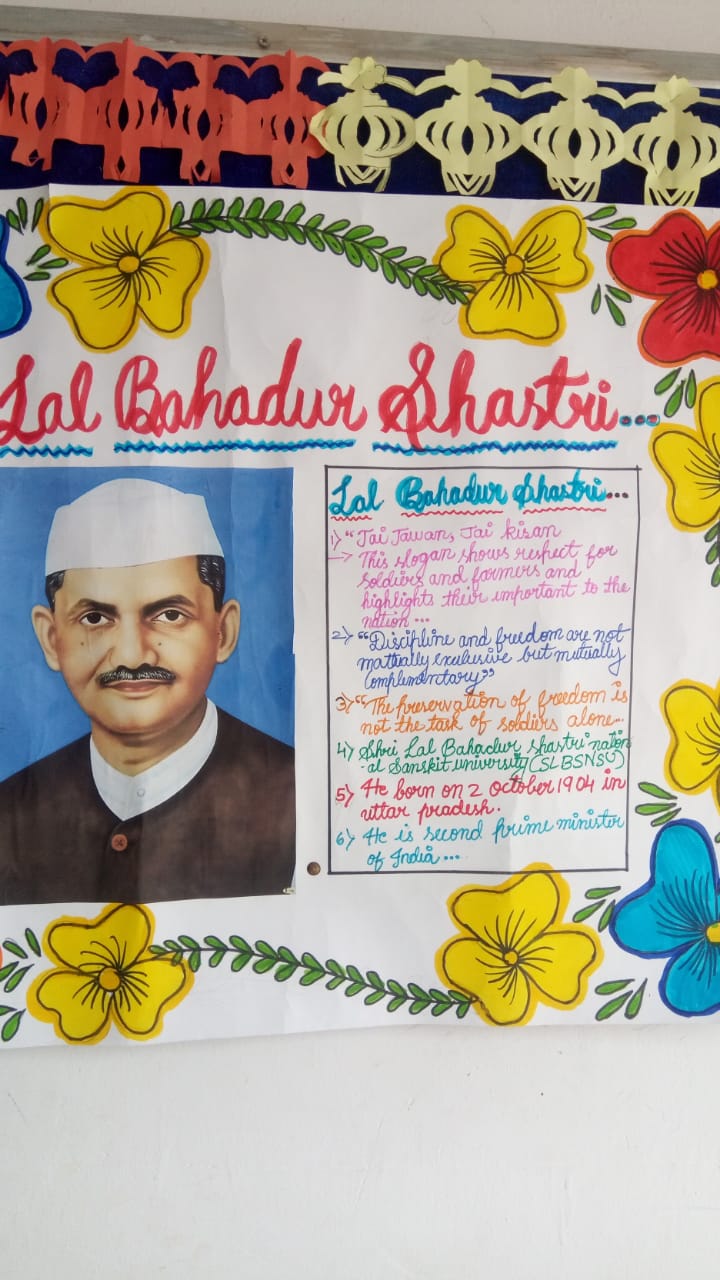 Lal Bahadur Shastri...
Lal Bahadur Shastri...
1) "Jai Jawan, Jai kisan
→ This slogan shows respect for
soldiers and farmers and
highlights their important to the
nation ...
2) "Discipline and freedom are not
mutually exclusive but mutually
Complimentary"
3) "The preservation of freedom is
not the task of soldiers alone...
4) Shri Lal Bahadur shastri nation
-al Sanskit university (SLBSNSU)
5) He born on 2 october 1904 in
uttar pradesh.
6) He is second prime minister
of India ...